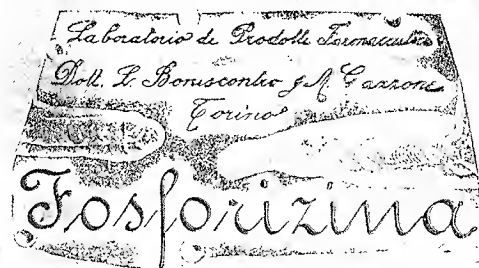 Laboratorio de Prodotti Farmaceutici
Dott. L. Boniscontro y M. Gazzone
Torino
Fosforizina